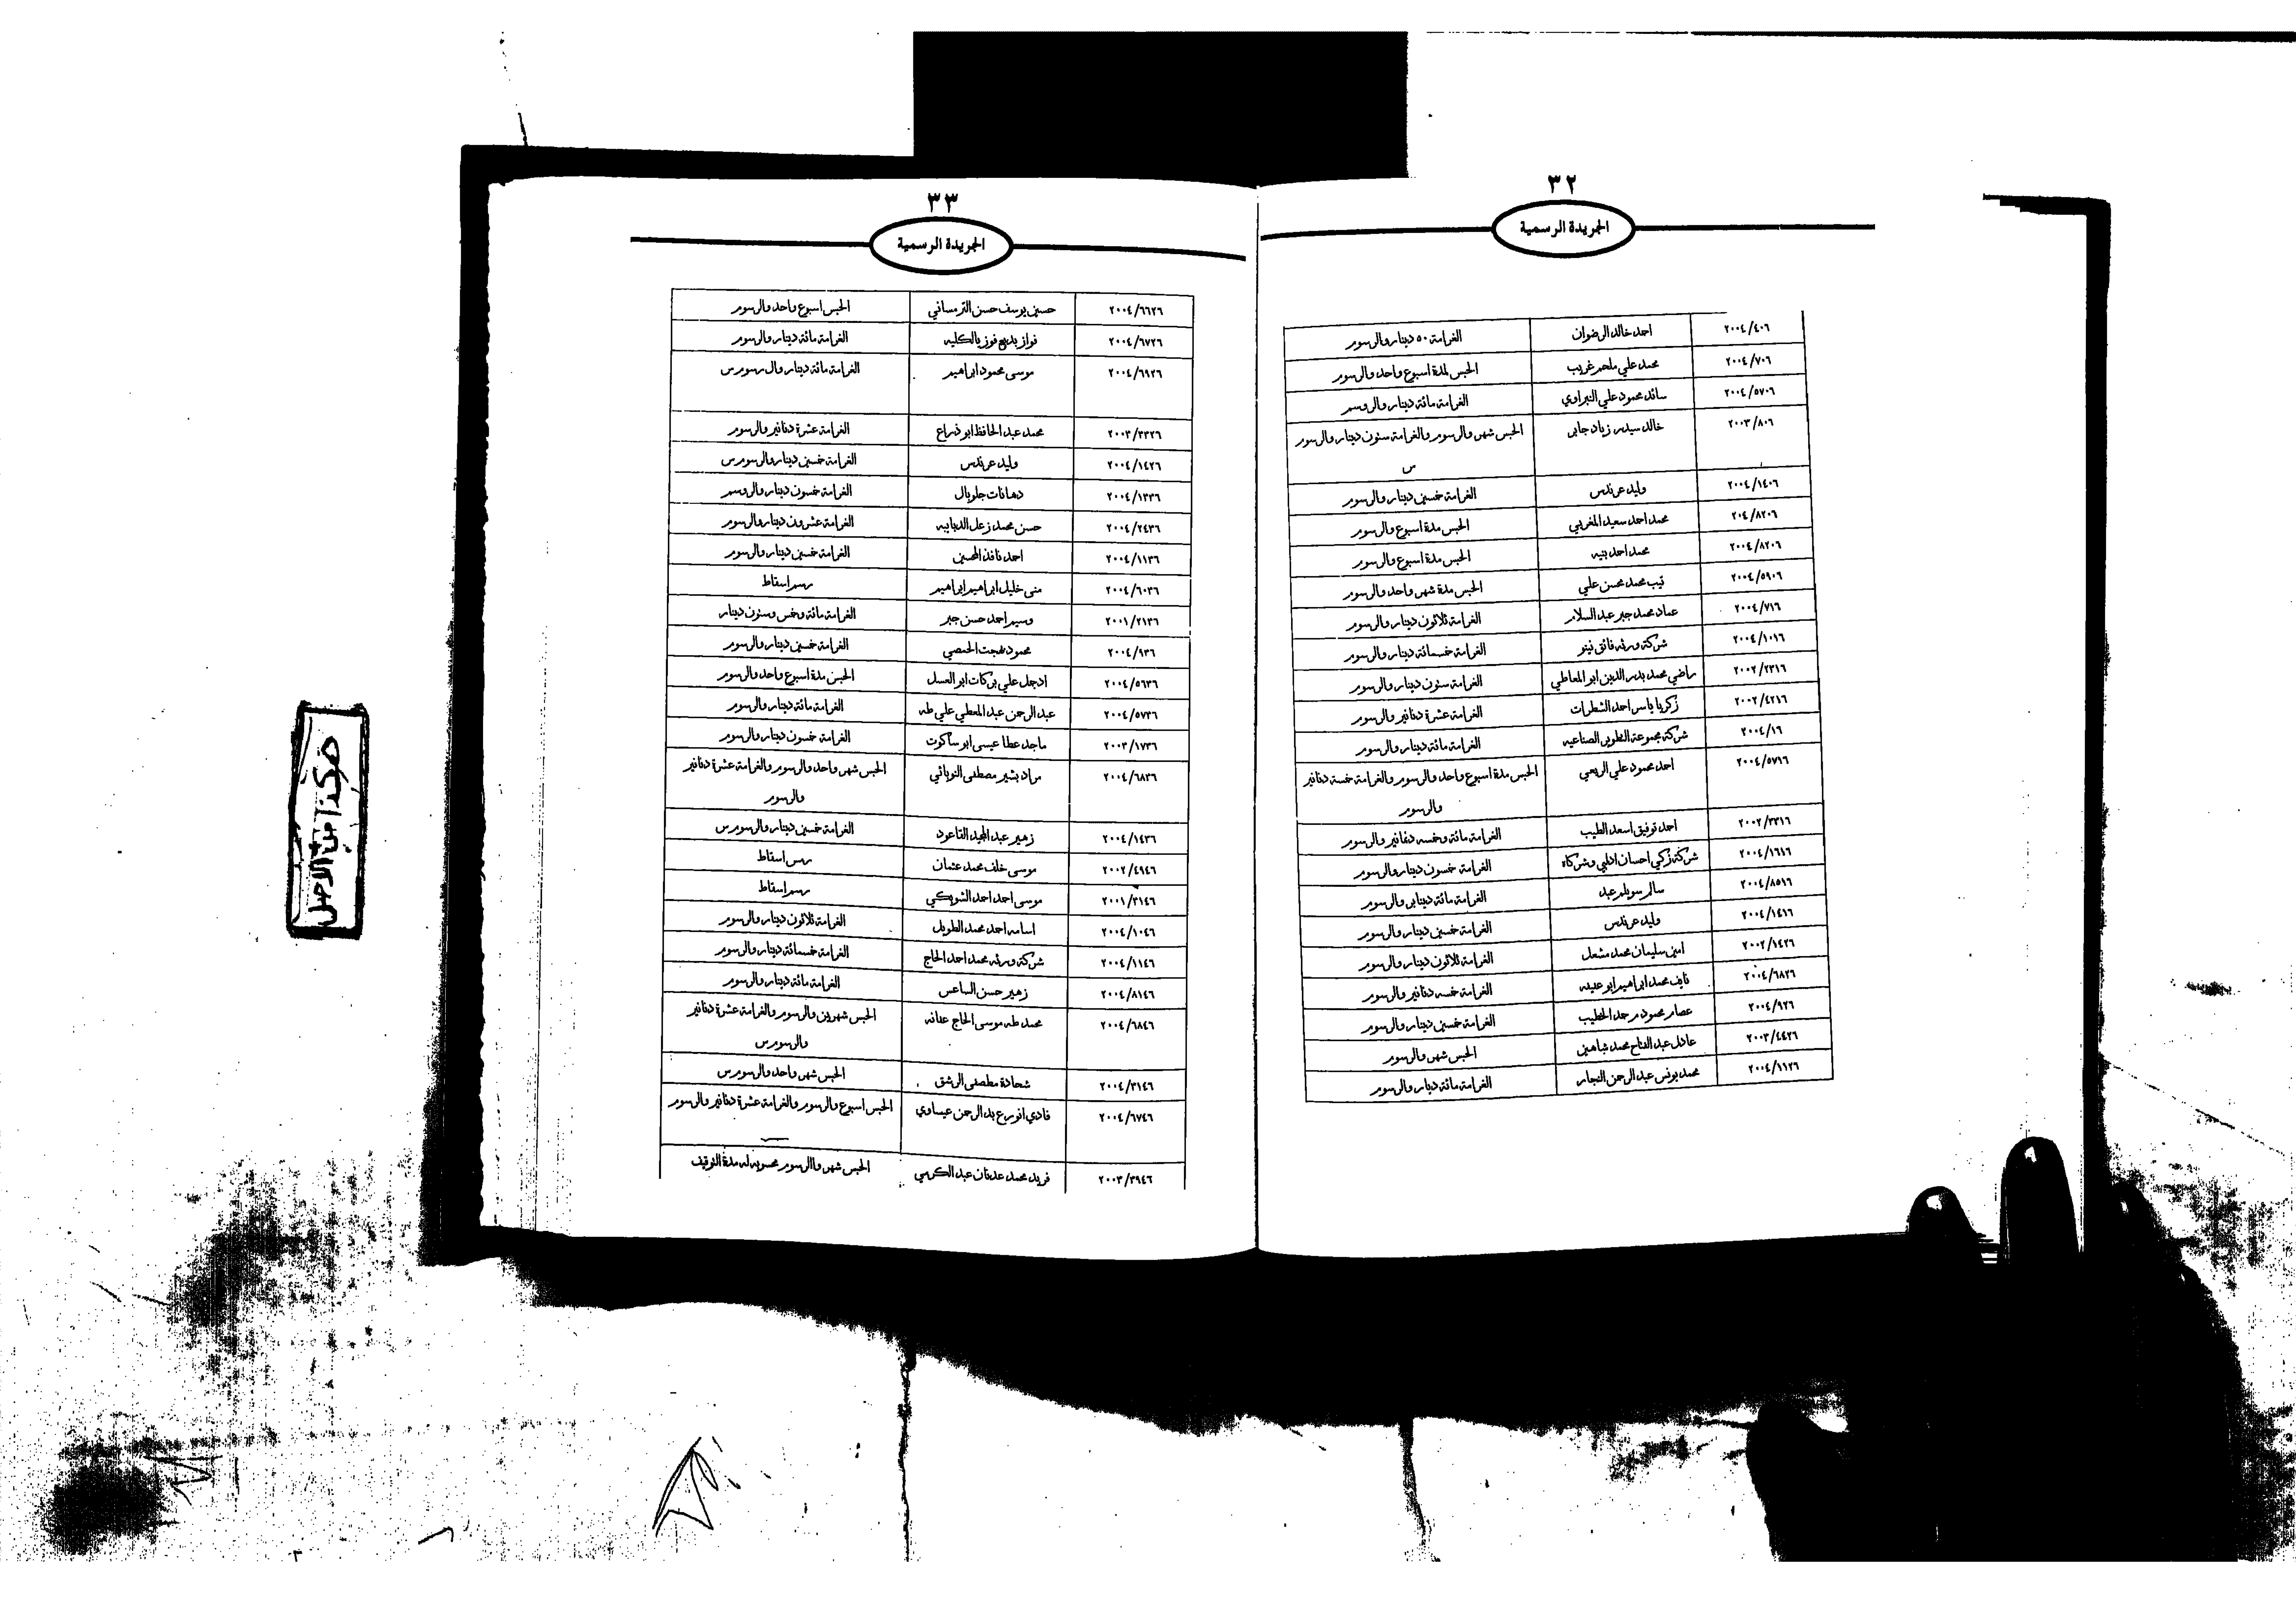 ٣٢
الجريدة الرسمية
٢٠٠٤/٤٠٦ احمد خالد الرضوان الغرامة ٥٠ دينار والرسوم
٢٠٠٤/٧٠٦ محمد علي ملحم غريب الحبس لمدة اسبوع واحد والرسوم
٢٠٠٤/٥٧٠٦ سائد محمود علي النبراوي الغرامة مائة دينار والوسم
٢٠٠٣/٨٠٦ خالد سيد زياد جابي الحبس شهر والرسوم والغرامة ستون دينار والرسوم
س
٢٠٠٤/١٤٠٦ وليد عرندس الغرامة خمسين دينار والرسوم
٢٠٤/٨٢٠٦ محمد احمد سعيد المغربي الحبس مدة اسبوع والرسوم
٢٠٠٤/٨٢٠٦ محمد احمد بنيه الحبس مدة اسبوع والرسوم
٢٠٠٤/٥٩٠٦ محمد محسن علي الحبس مدة شهر واحد والرسوم
٢٠٠٤/٧١٦ عماد محمد جبر عبد السلام الغرامة ثلاثون دينار والرسوم
٢٠٠٤/١٠١٦ شركة ورثه فائق نينو الغرامة خمسمائة دينار والرسوم
٢٠٠٢/٢٣١٦ راضي محمد بدر الدين ابو المعاطي الغرامة ستون دينار والرسوم
٢٠٠٢/٤٢١٦ زكريا ياسر احمد الشطرات الغرامة عشرة دنانير والرسوم
٢٠٠٤/١٦ شركة مجموعة التطوير الصناعيه الغرامة مائة دينار والرسوم
٢٠٠٤/٥٧١٦ احمد محمود علي الربعي الحبس مدة اسبوع واحد والرسوم والغرامة خمسة دنانير
والرسوم
٢٠٠٢/٣٣١٦ احمد توفيق اسعد الطيب الغرامة مائة وخمسه دنانير والرسوم
٢٠٠٤/١٦١٦ شركة زكي احسان ادلبي وشركاه الغرامة خمسون دينار والرسوم
٢٠٠٤/٨٥١٦ سالم سويلم عبد الغرامة مائة دينار والرسوم
٢٠٠٤/١٤١٦ وليد عرندس الغرامة خمسين دينار والرسوم
٢٠٠٢/١٤٢٦ امين سليمان محمد مشعل الغرامة ثلاثون دينار والرسوم
٢٠٠٤/٦٨٢٦ نايف محمد ابراهيم ابو عيشه الغرامة خمسه دنانير والرسوم
٢٠٠٤/٩٢٦ عصام محمود مرجد الخطيب الغرامة خمسين دينار والرسوم
٢٠٠٣/٤٤٢٦ عادل عبد الفتاح محمد شاهين الحبس شهر والرسوم
٢٠٠٤/١١٢٦ محمد يونس عبد الرحمن النجار الغرامة مائة دينار والرسوم
٣٣
الجريدة الرسمية
٢٠٠٤/٦٦٢٦ حسين يوسف حسن الترمساني الحبس اسبوع واحد والرسوم
٢٠٠٤/٦٧٢٦ فواز بديع فوزي الكليه الغرامة مائة دينار والرسوم
٢٠٠٤/٦٩٢٦ موسى محمود ابراهيم الغرامة مائة دينار وال رسوم س
٢٠٠٣/٣٣٢٦ محمد عبد الحافظ ابو ذراع الغرامة عشرة دنانير والرسوم
٢٠٠٤/١٤٢٦ وليد عرندس الغرامة خمسين دينار والرسوم س
٢٠٠٤/١٣٣٦ دهانات جلوبال الغرامة خمسون دينار والوسم
٢٠٠٤/٢٤٣٦ حسن محمد زعل الدبايبه الغرامة عشرون دينار والرسوم
٢٠٠٤/١١٣٦ احمد نافذ المحسين الغرامة خمسين دينار والرسوم
٢٠٠٤/٦٠٣٦ منى خليل ابراهيم ابراهيم رسم اسقاط
٢٠٠١/٢١٣٦ وسيم احمد حسن جبر الغرامة مائة وخمس وستون دينار
٢٠٠٤/٩٣٦ محمود بهجت الحمصي الغرامة خمسين دينار والرسوم
٢٠٠٤/٥٦٣٦ ادجل علي بركات ابو العسل الحبس مدة اسبوع واحد والرسوم
٢٠٠٤/٥٧٣٦ عبد الرحمن عبد المعطي علي طه الغرامة مائة دينار والرسوم
٢٠٠٣/١٧٣٦ ماجد عطا عيسى ابو ساكوت الغرامة خمسون دينار والرسوم
٢٠٠٤/٦٨٣٦ مراد بشير مصطفى النوباني الحبس شهر واحد والرسوم والغرامة عشرة دنانير
والرسوم
٢٠٠٤/١٤٣٦ زهير عبد المجيد القاعود الغرامة خمسين دينار والرسوم س
٢٠٠٢/٤٩٤٦ موسى خلف محمد عثمان رسم اسقاط
٢٠٠١/٣١٤٦ موسى احمد احمد الشويكي رسم اسقاط
٢٠٠٤/١٠٤٦ اسامه احمد محمد الطويل الغرامة ثلاثون دينار والرسوم
٢٠٠٤/١١٤٦ شركة ورثه محمد احمد الحاج الغرامة خمسمائة دينار والرسوم
٢٠٠٤/٨١٤٦ زهير حسن الساعس الغرامة مائة دينار والرسوم
٢٠٠٤/٦٨٤٦ محمد طه موسى الحاج عنانه الحبس شهرين والرسوم والغرامة عشرة دنانير
والرسوم س
٢٠٠٤/٣١٤٦ شحادة مطصفى الرشق الحبس شهر واحد والرسوم س
٢٠٠٤/٦٧٤٦ فادي انور ع بد الرحمن عيساوي الحبس اسبوع والرسوم والغرامة عشرة دنانير والرسوم
٢٠٠٣/٣٩٤٦ فريد محمد عدنان عبد الكرمي الحبس شهر واالرسوم محسوبه له مدة التوقيف
هكذا من الاصل